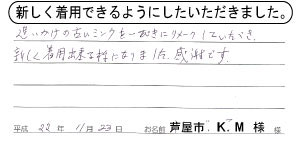 新しく着用できるようにしたいただきました。
思いがけの古いミンクを一部きにリメークしていただき、
新しく着用出来る様になりました。感謝です。
平成 22 年 11月 23日 お名前 芦屋市 K.M 様 様